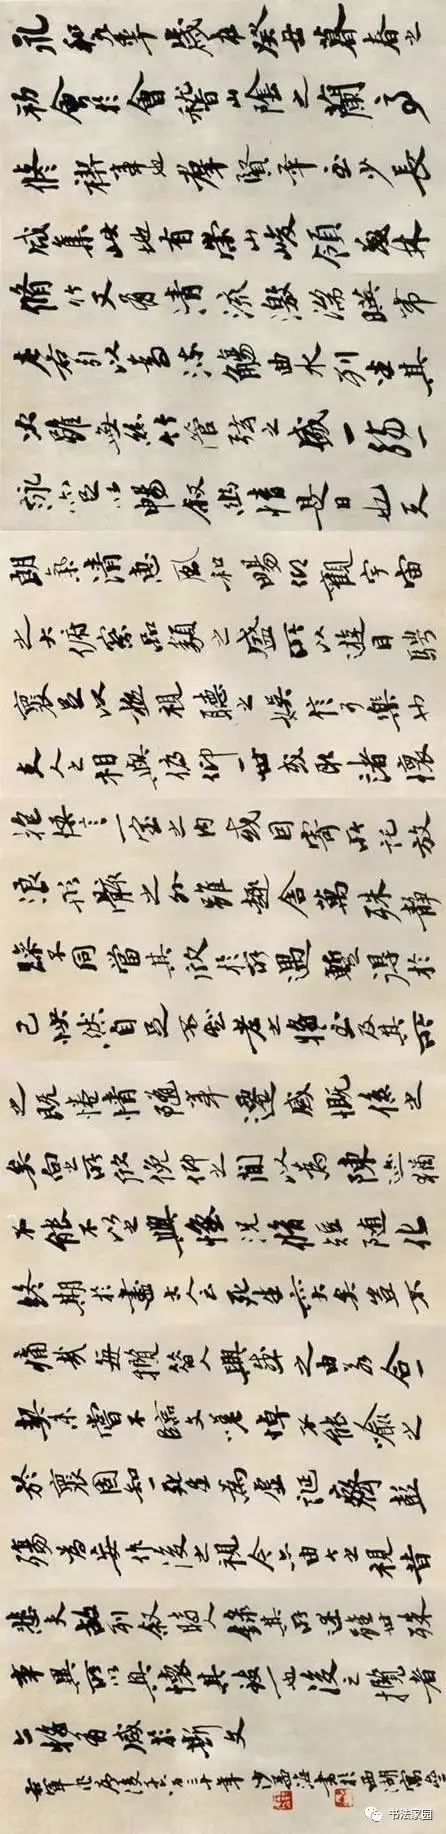 永和九年歲在癸丑暮春之
初會於會稽山陰之蘭亭
脩禊事也群賢畢至少長
咸集此地有崇山峻領茂林
脩竹又有清流激湍暎帶
左右引以為流觴曲水列坐其
次雖無絲竹管弦之盛一觴一
詠亦足以暢敘幽情是日也天
朗氣清惠風和暢仰觀宇宙
之大俯察品類之盛所以遊目騁
懷足以極視聽之娛信可樂也
夫人之相與俯仰一世或取諸懷
抱悟言一室之內或因寄所託放
浪形骸之外雖趣舍萬殊靜
躁不同當其欣於所遇暫得於
己怏然自足不知老之將至及其所
之既惓情隨事遷感慨係之
矣向之所欣俛仰之間以為陳迹猶
不能不以之興懷況脩短隨化
終期於盡古人云死生亦大矣豈不
痛哉每攬昔人興感之由若合一
契未嘗不臨文嗟悼不能喻之
於懷固知一死生為虛誕齊彭
殤為妄作後之視今亦由今之視昔
悲夫故列敘時人錄其所述雖世殊
事異所以興懷其致一也後之攬者
亦將有感於斯文
右軍作序後千六百三十年 沙孟海書於西湖寓廬
书法家园